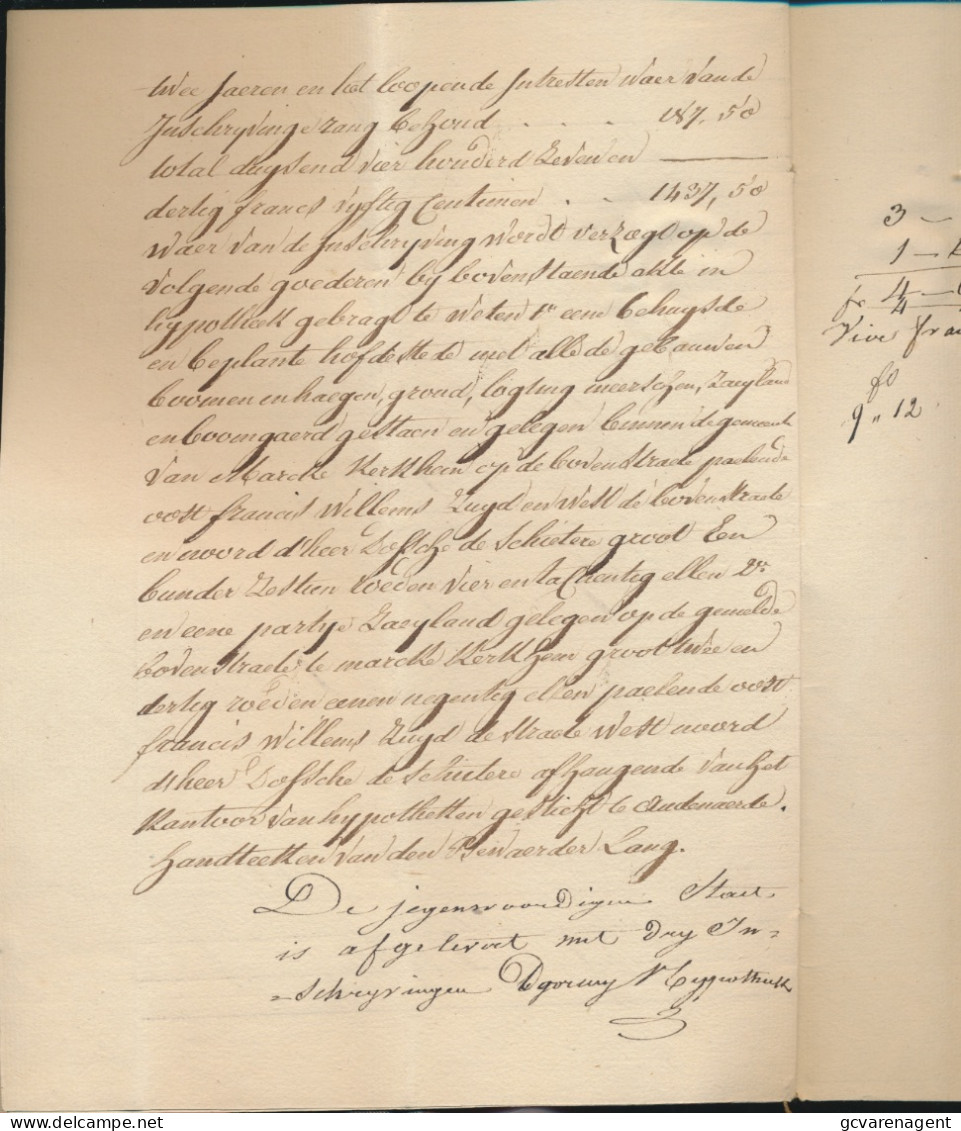 twee Jaeren en het loopende Intresten waer van de
Inschryving e rang behoud . . . . 187, 50
total duysend vier honderd Zeven en
dertig francs vyftig Centimen . . 1437, 50
Waer van de Inschryving wordt verzogt op de
volgende goederen by bovenstaende akte in
hypotheek gebragt te weten 1° eene behuysde
en beplante hofdstede met alle de gebauwen
boomen en haegen, grond, logting meerschen, Zaeyland
en boomgaerd gestaen en gelegen binnen de gemeente
van Marcke Kerkhem op de bovenstraete paelende
oost francis Willems Zuyd en West de bovenstraete
en noord d'heer de Schietere groot Een
bunder Zestien roeden vier en tachentig ellen 2°
en eene partye Zaeyland gelegen op de gemelde
bovenstraete te marcke Kerkhem groot twee en
dertig roeden eenen negentig ellen paelende oost
francis Willems Zuyd de straete West noord
d'heer de Schietere afhangende van het
Kantoor van hypotheeken gesticht te Audenaerde.
handteeken van den Bewaerder Lang.
De jegenwoordigen Staet
is afgelevert met dry In=
=schryvingen
3 —
1 —
fr 4 —
4
Vier fra
fo
9 " 12
© Delcampe.net
gcvarenagent